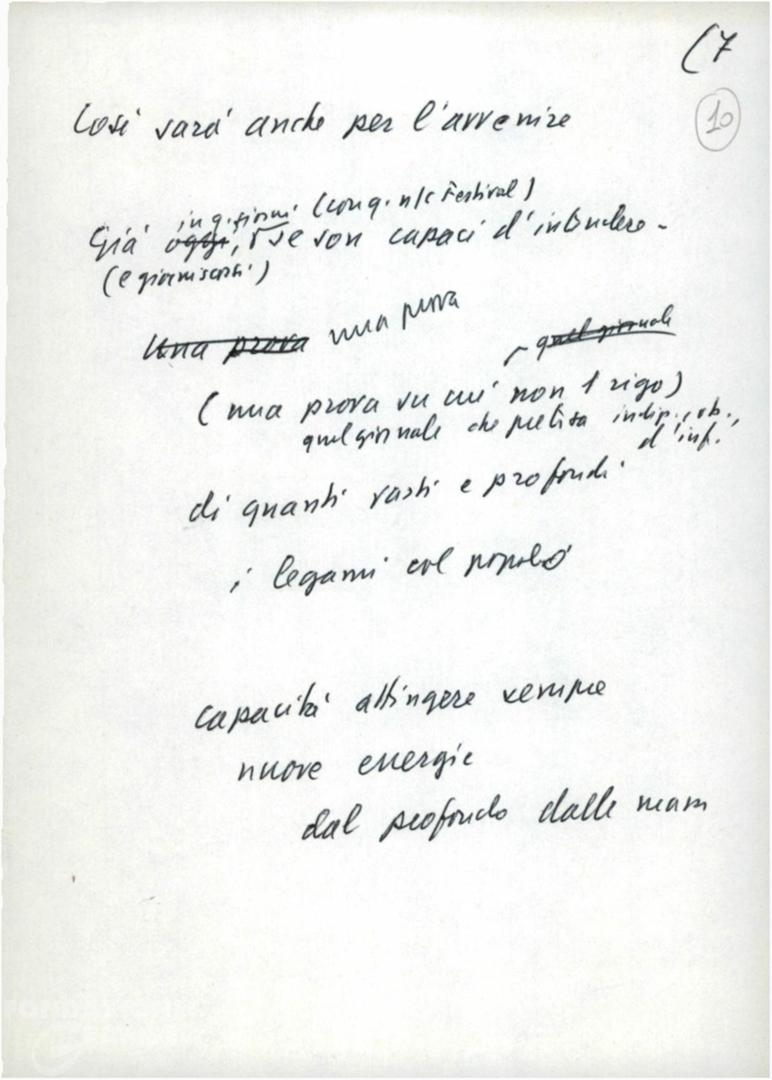 (7
10
Così sarà anche per l'avvenire
in q. giorni (con q. n/s Festival)
Già oggi, se son capaci d'intendere -
(e giorni scorsi)
Una prova una prova
quel giornale
(una prova su cui non 1 rigo)
quel giornale che pretisa indip., ob.,
d'inf.
di quanti vasti e profondi
i legami col popolo
capacità attingere sempre
nuove energie
dal profondo dalle mass